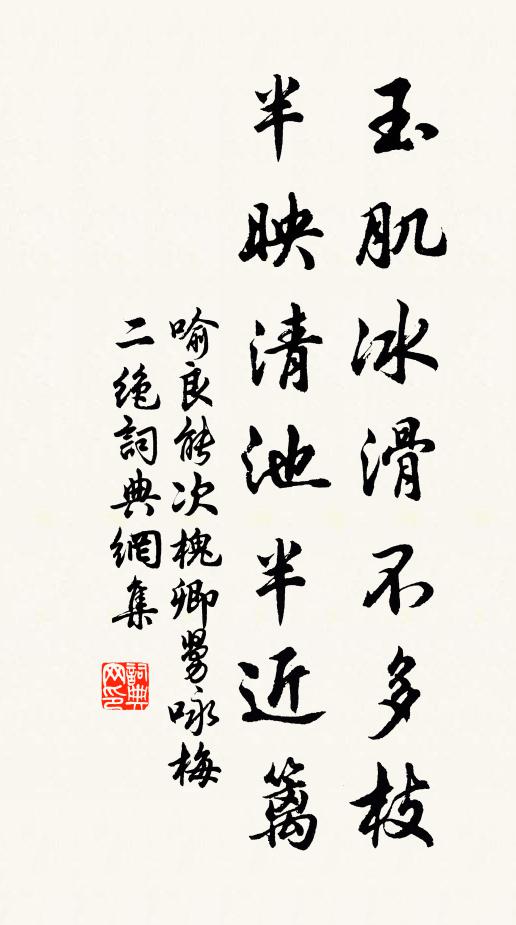 玉肌冰滑不多枝
半映清池半近籬
喻良能次槐卿舅咏梅
二絶詞典網集
詞典网印